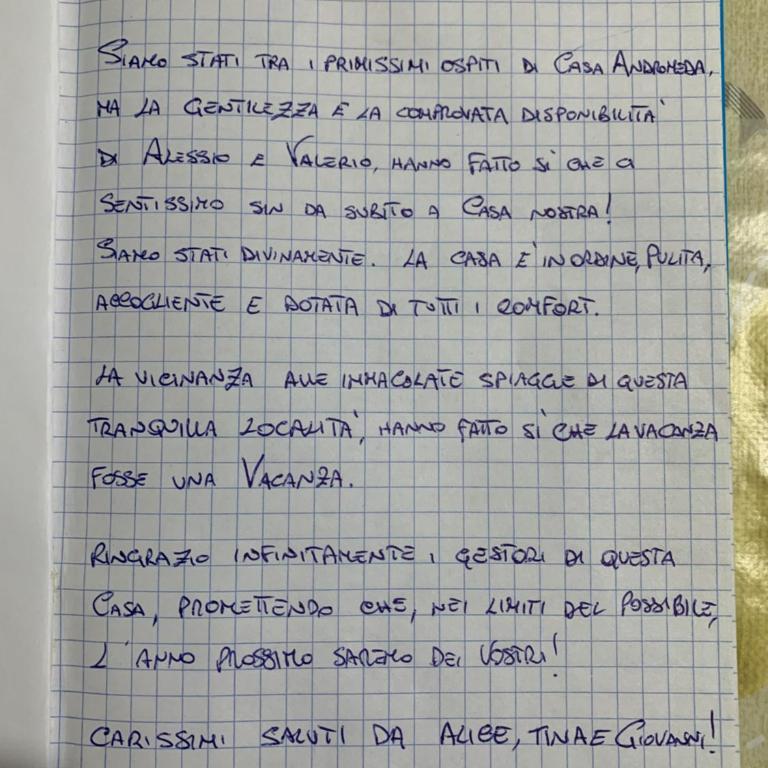 SIAMO STATI TRA I PRIMISSIMI OSPITI DI CASA ANDROMEDA,
MA LA GENTILEZZA E LA COMPROVATA DISPONIBILITA'
DI ALESSIO E VALERIO, HANNO FATTO SÌ CHE CI
SENTISSIMO SIN DA SUBITO A CASA NOSTRA!
SIAMO STATI DIVINAMENTE. LA CASA E' IN ORDINE, PULITA,
ACCOGLIENTE E DOTATA DI TUTTI I COMFORT.
LA VICINANZA ALLE IMMACOLATE SPIAGGE DI QUESTA
TRANQUILLA LOCALITA', HANNO FATTO SÌ CHE LA VACANZA
FOSSE UNA VACANZA.
RINGRAZIO INFINITAMENTE I GESTORI DI QUESTA
CASA, PROMETTENDO CHE, NEI LIMITI DEL POSSIBILE,
L'ANNO PROSSIMO SAREMO DEI VOSTRI!
CARISSIMI SALUTI DA ALICE, TINA E GIOVANNI!